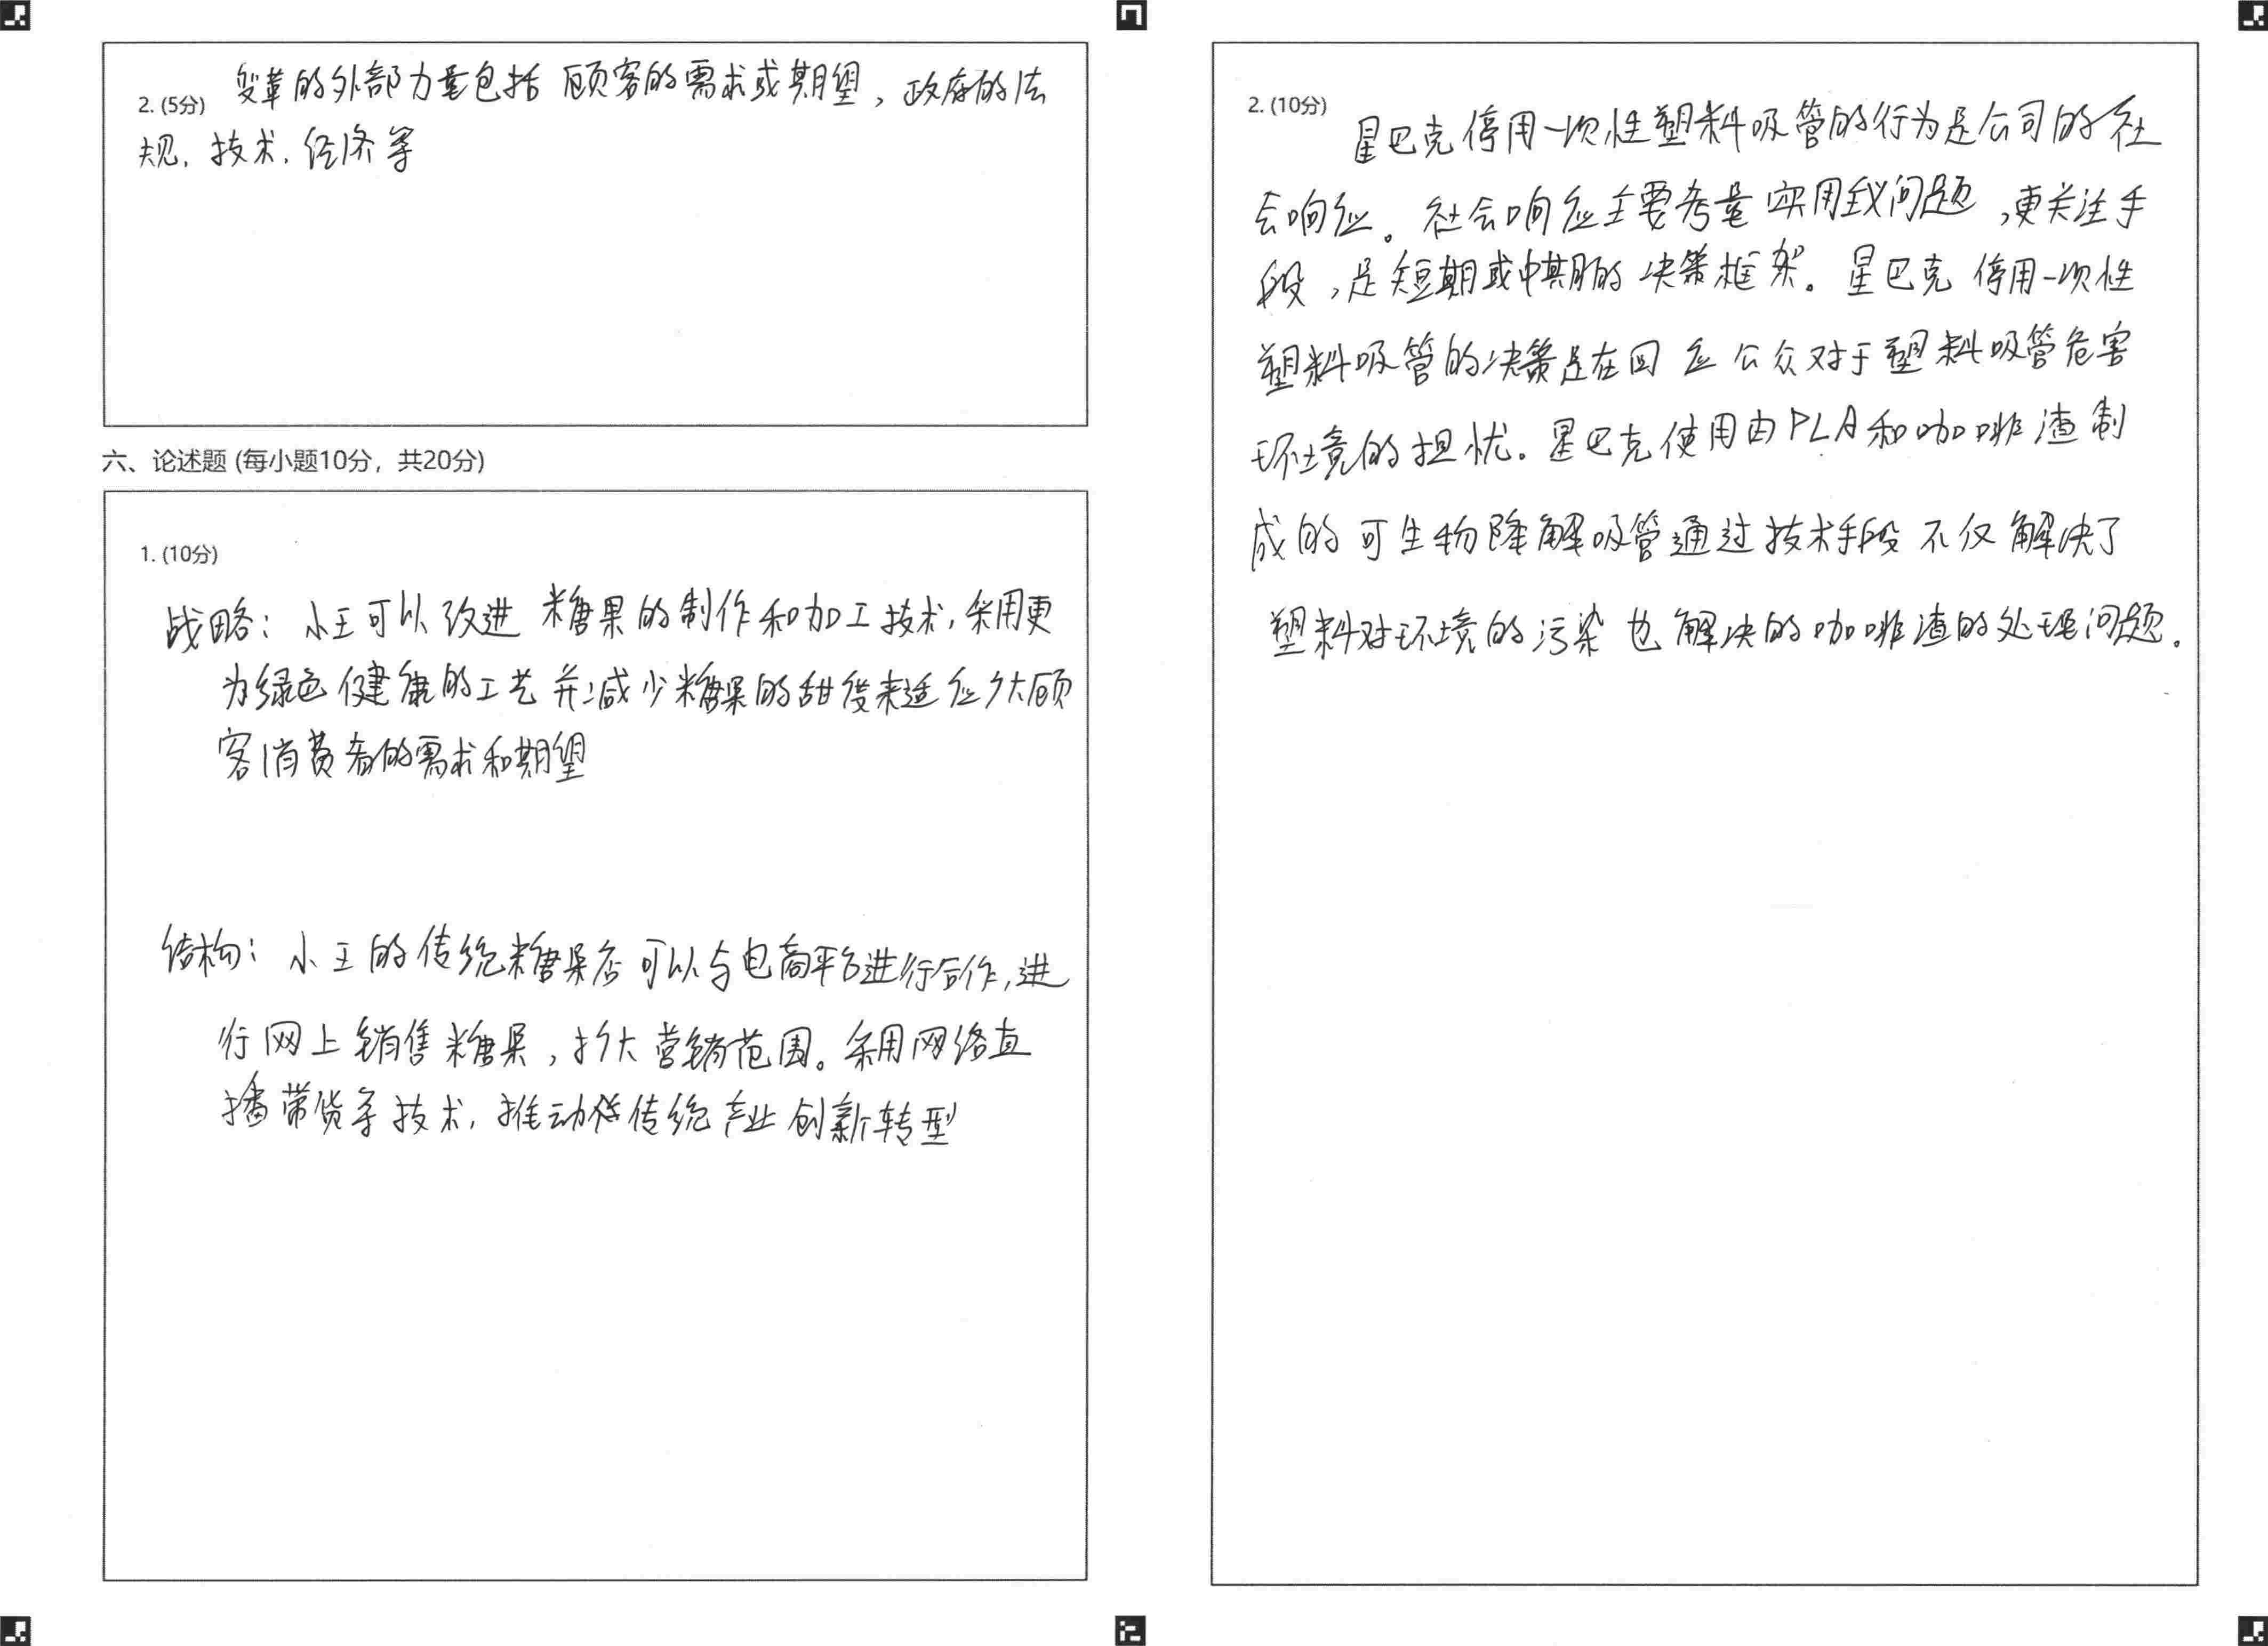 2. (5分) 变革的外部力量包括 顾客的需求或期望、政府的法
规、技术、经济等
六、论述题 (每小题10分，共20分)
1. (10分)
战略：小王可以改进 糖果的制作和加工技术，采用更
为绿色健康的工艺并减少糖果的甜度来适应广大顾
客消费者的需求和期望
结构：小王的传统糖果店可以与电商平台进行合作，进
行网上销售糖果，扩大营销范围。采用网络直
播带货等技术，推动传统产业创新转型
2. (10分) 星巴克停用一次性塑料吸管的行为是公司的社
会响应。社会响应主要考量实用主义问题，更关注手
段，是短期或中期的决策框架。星巴克停用一次性
塑料吸管的决策是在回应公众对于塑料吸管危害
环境的担忧。星巴克使用由PLA和咖啡渣制
成的可生物降解吸管通过技术手段不仅解决了
塑料对环境的污染也解决的咖啡渣的处理问题。